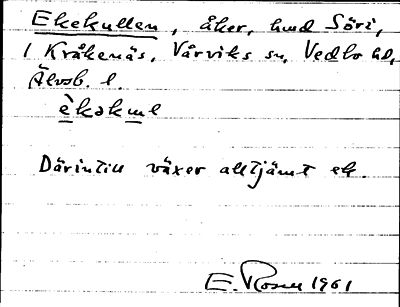 Ekekullen, åker, hmd Söri,
1 Kråkenäs, Vårviks sn, Vedbo hd,
Älvsb. l.
èkəkɯl
Därintill växer alltjämt ek.
E. Rosen 1961